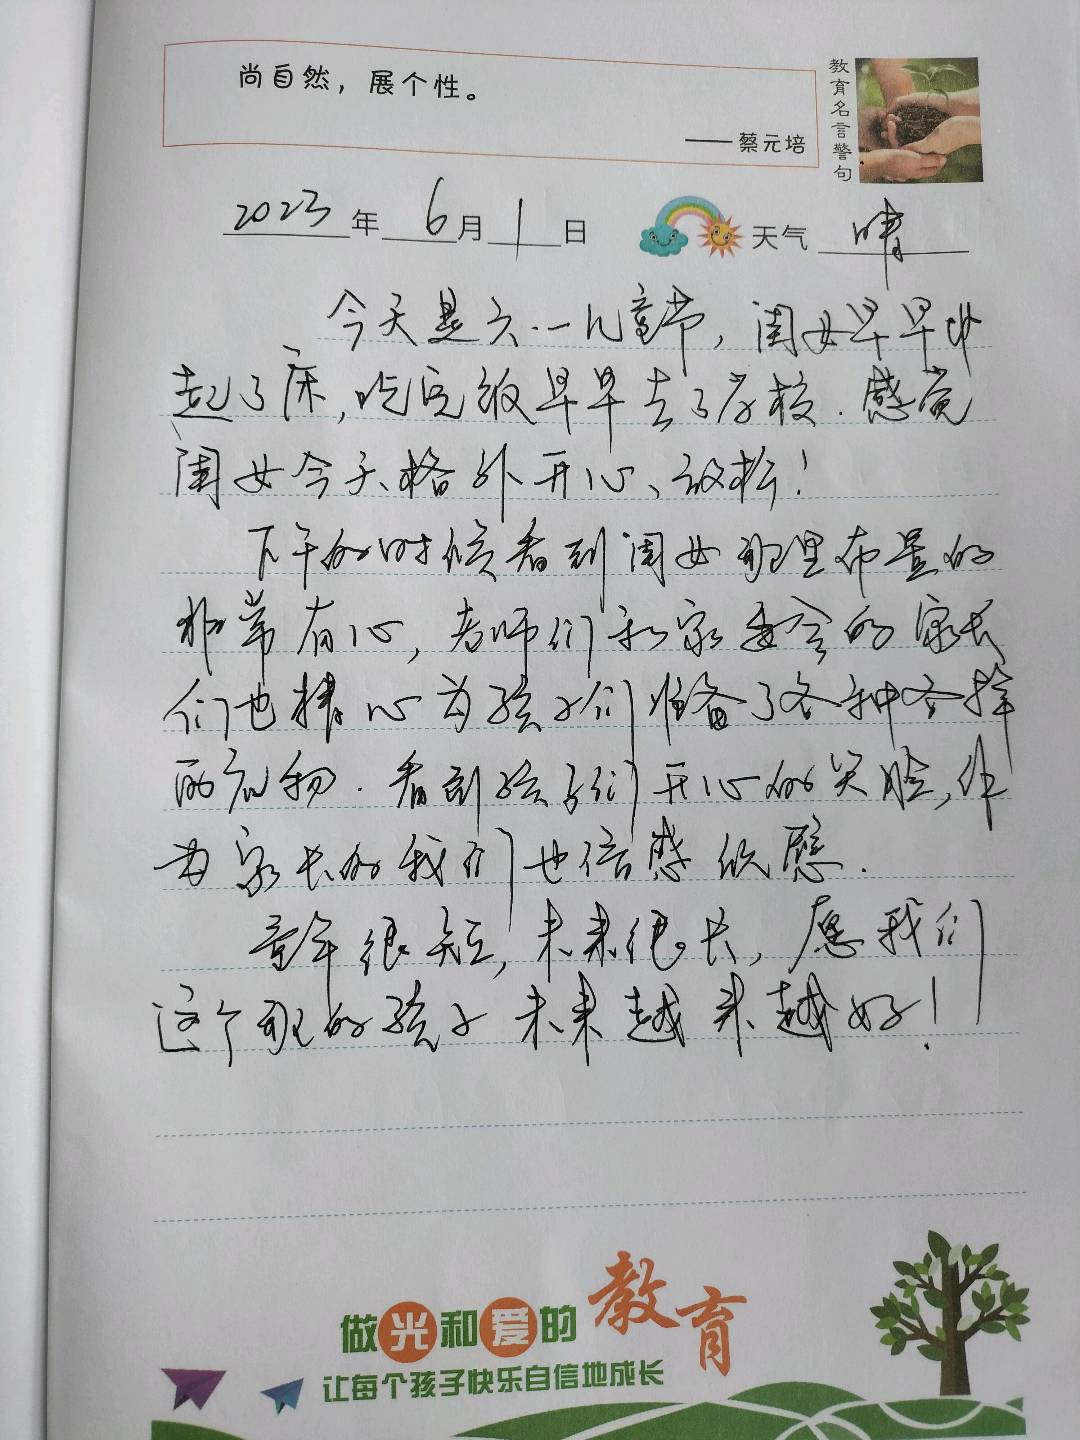 尚自然，展个性。
——蔡元培
教育名言警句
2023年6月1日 天气 晴
今天是六.一儿童节，闺女早早地
起了床，吃完饭早早去了学校.感觉
闺女今天格外开心、放松！
下午的时候看到闺女班里布置的
非常有心，老师们和家委会的家长
们也精心为孩子们准备了各种各样
的礼物.看到孩子们开心的笑脸，作
为家长的我们也倍感欣慰.
童年很短，未来很长，愿我们
这个班的孩子未来越来越好！
做光和爱的教育
让每个孩子快乐自信地成长